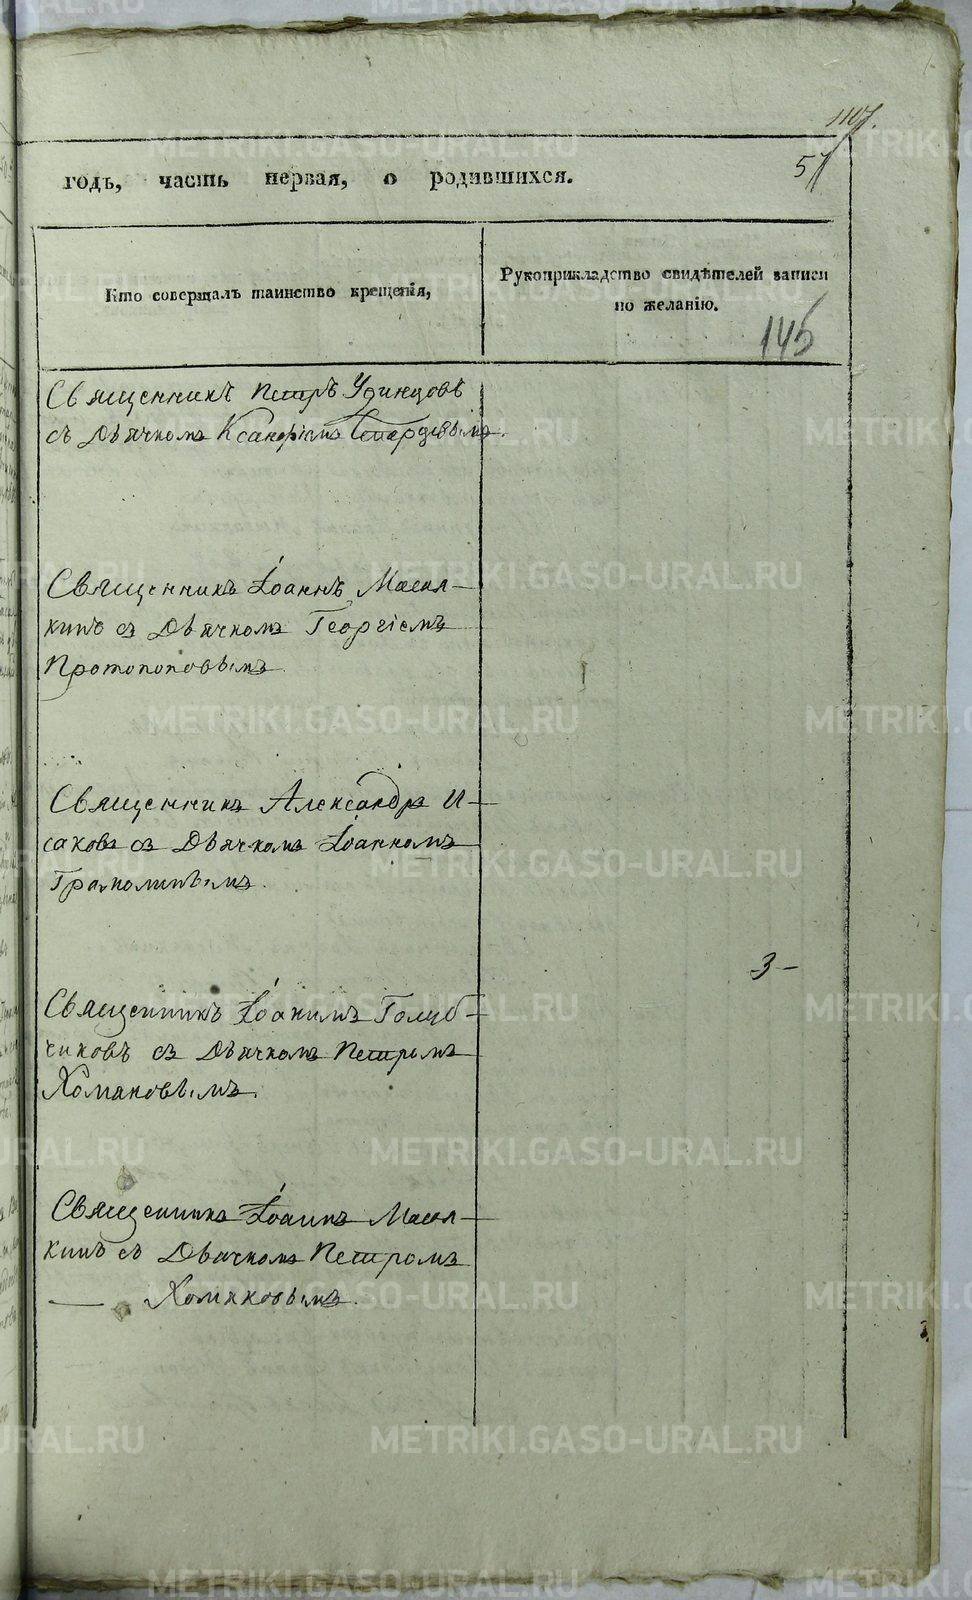 1107.
57
годъ, часть первая, о родившихся.
Кто совершалъ таинство крещенія,
Рукоприкладство свидѣтелей записи
по желанію.
145
Священникъ Петръ Удинцовъ
съ Дьячкомъ
Священникъ Іоаннъ Масял-
кинъ съ Дьячкомъ Георгіемъ
Протопоповымъ
Священникъ Александръ И-
саковъ съ Дьячкомъ Іоанномъ
3-
Священникъ Іоакимъ Голуб-
чиковъ съ Дьячкомъ Петромъ
Хомяковымъ.
Священникъ Іоаннъ Масял-
кинъ съ Дьячкомъ Петромъ
— Хомяковымъ.
METRIKI.GASO-URAL.RU